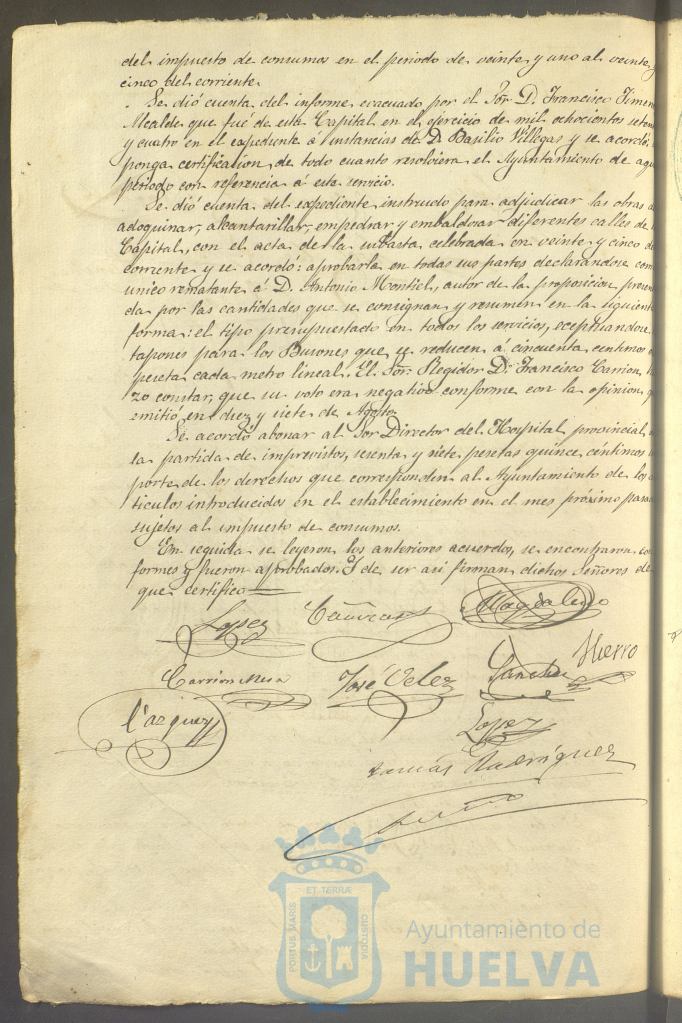 del impuesto de consumos en el periodo de veinte y uno al veinte y
cinco del corriente.
Se dió cuenta del informe evacuado por el Sor. D. Francisco Jimen
Alcalde que fué de esta Capital en el ejercicio de mil ochocientos seten
y cuatro en el espediente á instancias de D. Basilio Villegas y se acordó
ponga certificacion de todo cuanto resolviera el Ayuntamiento de aqu
periodo con referencia á este servicio.
Se dió cuenta del espediente instruido para adjudicar las obras d
adoquinar, alcantarillar, empedrar y embaldosar diferentes calles de
Capital, con el acta de la subasta celebrada en veinte y cinco d
corriente y se acordó: aprobarla en todas sus partes declarandose com
unico rematante á D. Antonio Montiel, autor de la proposicion presen
da por las cantidades que se consignan y resumen en la siguient
forma: el tipo presupuestado en todos los servicios, eceptuandose
tapones para los Busones que se reducen á cincuenta centimos
peseta cada metro lineal. El Sor. Regidor D. Francisco Carrion, h
zo constar, que su voto era negativo conforme con la opinion, q
emitió en diez y siete de Agosto.
Se acordó abonar al Sor Director del Hospital provincial,
la partida de imprevistos, sesenta y siete pesetas quince céntimos
porte de los derechos que corresponden al Ayuntamiento de los
ticulos introducidos en el establecimiento en el mes próximo pasa
sujetos al impuesto de consumos.
En seguida se leyeron los anteriores acuerdos, se encontraron co
formes y fueron aprobados. Y de ser asi firman dichos Señores de
que certifico
Lopez Magdaleno
Carrion Mesa José Velez Sanchez Hierro
Vazquez
Lopez
Tomás Rodriguez
PORTUS MARIS ET TERRÆ CUSTODIA
Ayuntamiento de
HUELVA